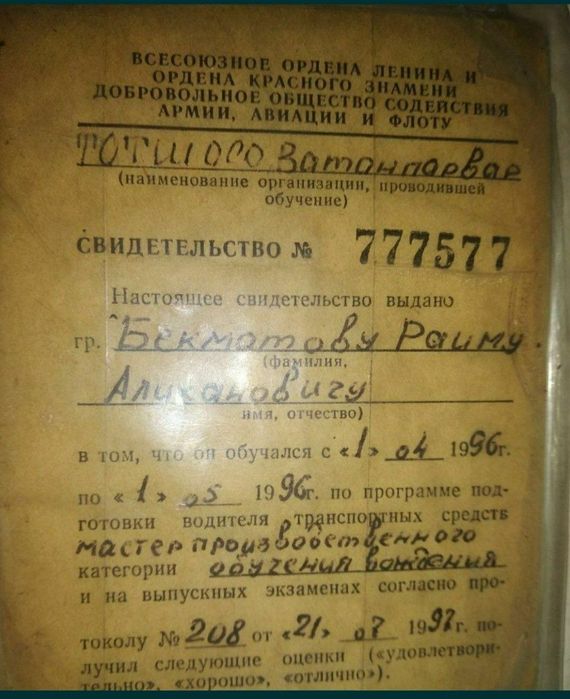 ВСЕСОЮЗНОЕ ОРДЕНА ЛЕНИНА И
ОРДЕНА КРАСНОГО ЗНАМЕНИ
ДОБРОВОЛЬНОЕ ОБЩЕСТВО СОДЕЙСТВИЯ
АРМИИ, АВИАЦИИ И ФЛОТУ
ТОТШ ОСО Ватанпарвар
(наименование организации, проводившей
обучение)
СВИДЕТЕЛЬСТВО № 777577
Настоящее свидетельство выдано
гр. Бекматову Раиму
(фамилия,
Алихановичу
имя, отчество)
в том, что он обучался с «1» 04 1996г.
по «1» 05 1996г. по программе под-
готовки водителя транспортных средств
мастер производственного
категории обучения вождения
и на выпускных экзаменах согласно про-
токолу № 208 от «21» 07 1997г. по-
лучил следующие оценки («удовлетвори-
тельно», «хорошо», «отлично»).